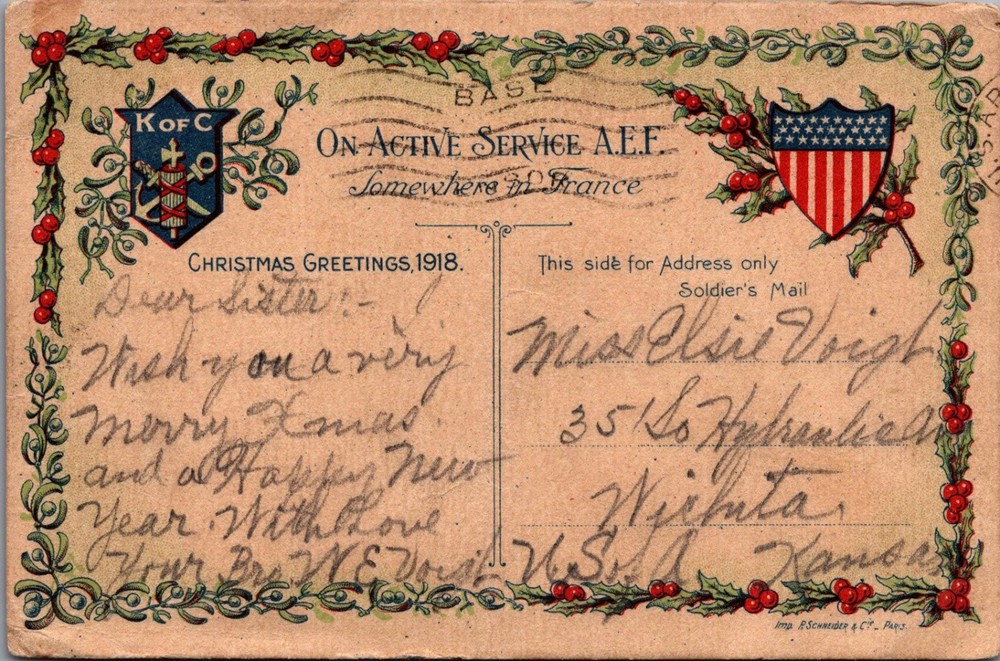 BASE
K OF C
ON ACTIVE SERVICE A.E.F.
Somewhere in France
CHRISTMAS GREETINGS, 1918.
Dear Sister:-
Wish you a very
merry Xmas.
and a Happy New
Year. With Love
Your Bro W E Voigt
This side for Address only
Soldier's Mail
Miss Elsie Voigt
351 So Hydraulic Av
Wichita,
U.S.A. Kansas
Imp. P. SCHNEIDER & Cie _ PARIS.